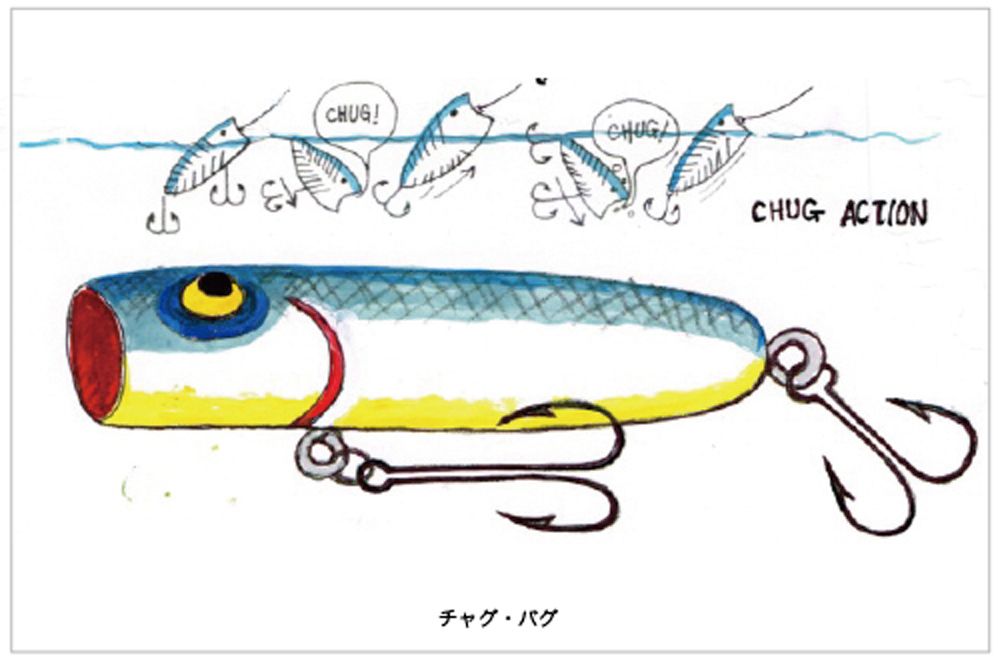 CHUG!
CHUG!
CHUG ACTION
チャグ・バグ